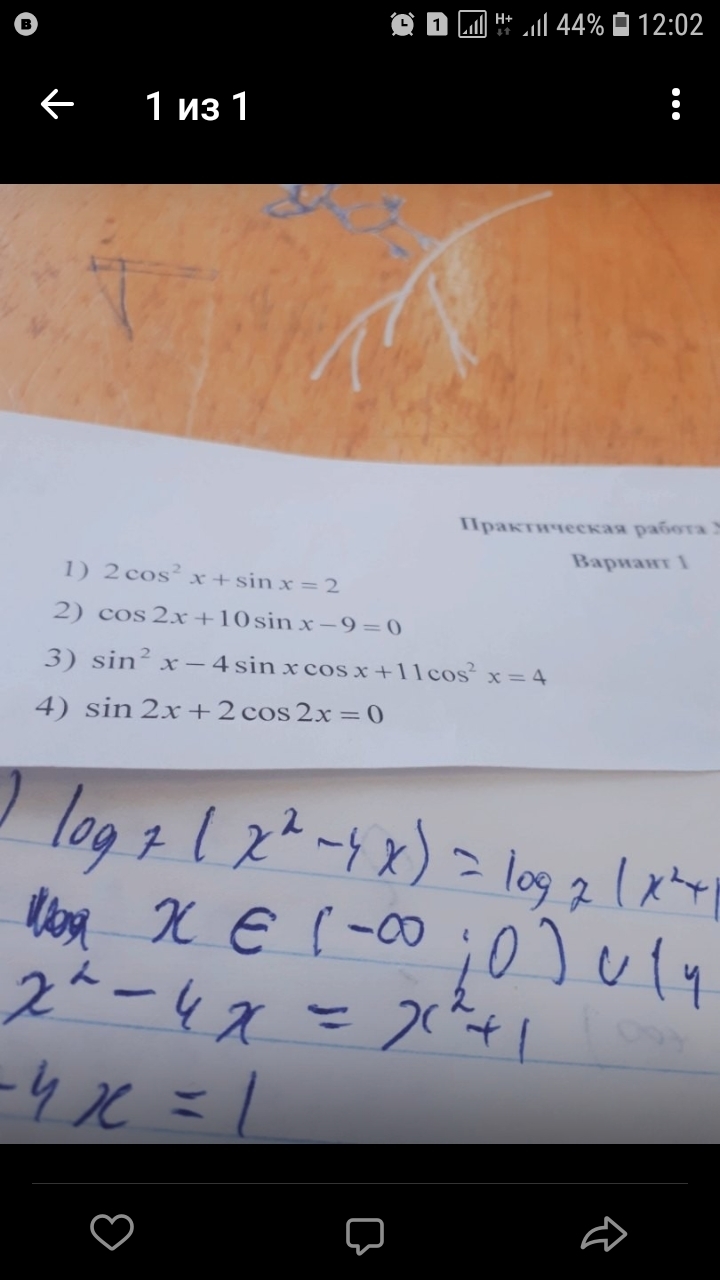 B 1 H+ 44% 12:02
1 из 1
Практическая работа
Вариант 1
1) 2 cos² x + sin x = 2
2) cos 2x + 10 sin x − 9 = 0
3) sin² x − 4 sin x cos x + 11 cos² x = 4
4) sin 2x + 2 cos 2x = 0
) log 7 ( x² − 4x) = log 7 ( x² + 1
x ∈ ( −∞ ; 0 ) ∪ ( 4
x² − 4x = x² + 1
−4x = 1